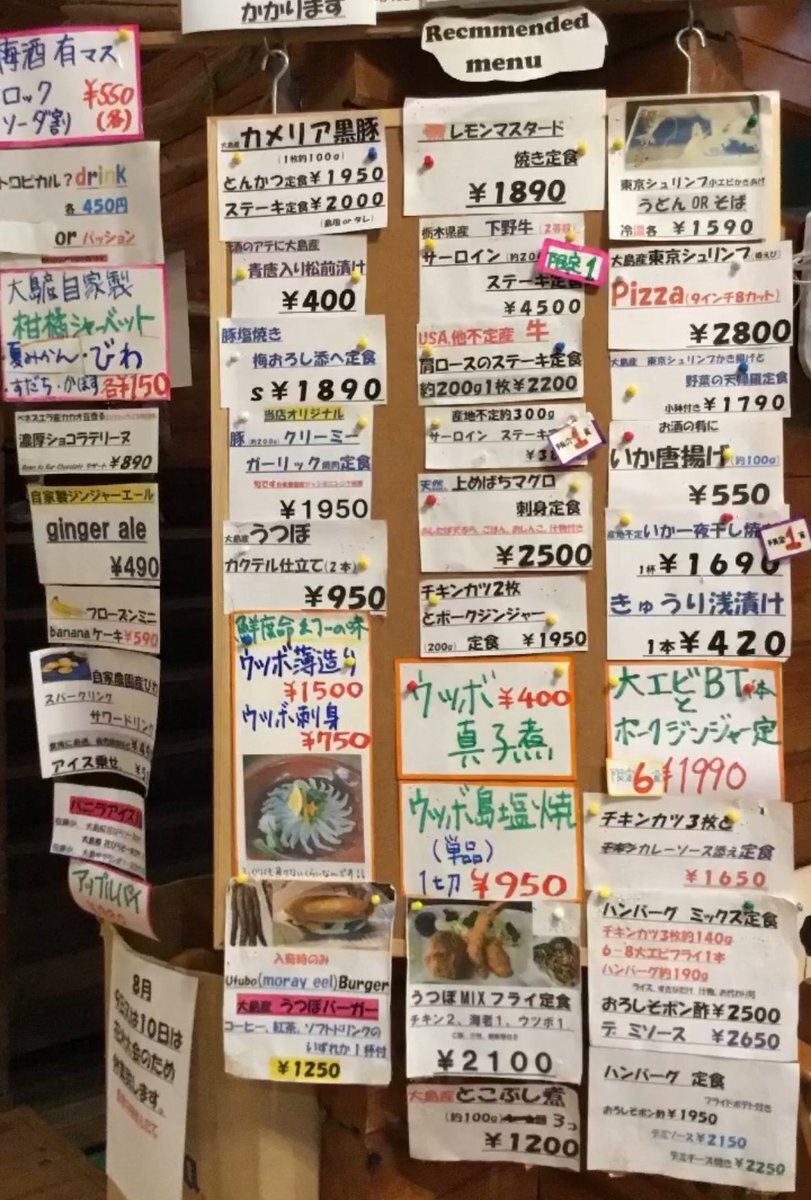 かかります
Recmmended
menu
梅酒 有マス
ロック ¥550
ソーダ割 (各)
トロピカル?drink
各 450円
or パッション
大島産自家製
柑橘シャーベット
・夏みかん・びわ
・すだち・かぼす各¥150
ベネズエラ産カカオ豆香る
濃厚ショコラテリーヌ
¥890
自家製ジンジャーエール
ginger ale
¥490
フローズンミニ
bananaケーキ¥590
自家農園産びわ
スパークリング
サワードリンク
アイス乗せ
バニラアイス
アップルパイ
8月
9日又は10日は
花火大会のため
休業致します。
大島産 カメリア黒豚
(1枚約100g)
とんかつ定食¥1950
ステーキ定食¥2000
(島塩orタレ)
お酒のアテに大島産
青唐入り松前漬け
¥400
豚塩焼き
梅おろし添へ定食
s¥1890
当店オリジナル
豚(約200g)クリーミー
ガーリック焼肉定食
¥1950
大島産 うつぼ
カクテル仕立て(2本)
¥950
鮮度命まつーの味
ウツボ薄造り
¥1500
ウツボ刺身
¥750
入荷時のみ
Utubo(moray eel)Burger
大島産 うつぼバーガー
コーヒー、紅茶、ソフトドリンクの
いずれか1杯付
¥1250
レモンマスタード
焼き定食
¥1890
栃木県産 下野牛(2等級)
サーロイン(約200
ステーキ定食
¥4500
限定1
USA,他不定産 牛
肩ロースのステーキ定食
約200g1枚¥2200
産地不定約300g
サーロイン ステーキ
¥38
限定1
天然、上めばちマグロ
刺身定食
¥2500
チキンカツ2枚
とポークジンジャー
(200g) 定食 ¥1950
ウツボ ¥400
真子煮
ウツボ島塩焼
(単品)
1切 ¥950
うつぼMIXフライ定食
チキン2、海老1、ウツボ1
¥2100
大島産とこぶし煮
(約100g) 3コ
¥1200
東京シュリンプ小エビかきあげ
うどん OR そば
冷温各 ¥1590
大島産東京シュリンプ(姫えび)
Pizza(9インチ8カット)
¥2800
大島産 東京シュリンプかき揚げと
野菜の天麩羅定食
小鉢付き ¥1790
お酒の肴に
いか唐揚げ(約100g)
¥550
産地不定いか一夜干し焼
1杯 ¥1690
限定1
きゅうり浅漬け
1本 ¥420
大エビBT1本
と
ポークジンジャー定
6 ¥1990
チキンカツ3枚と
チキンカレーソース添え定食
¥1650
ハンバーグ ミックス定食
チキンカツ3枚約140g
6-8大エビフライ1本
ハンバーグ約190g
おろしそポン酢¥2500
デミソース ¥2650
ハンバーグ 定食
フライドポテト付き
おろしそポン酢¥1950
デミソース¥2150
デミチーズ焼き¥2250